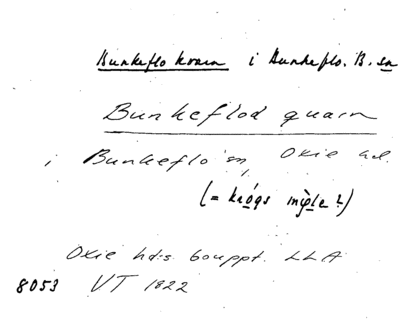 Bunkeflo kvarn i Bunkeflo. B. sn
Bunkeflod quarn
i Bunkeflo sn, Oxie hd.
(= krógs mø̀lle?)
Oxie hd:s bouppt. LLA
8053 VT 1822